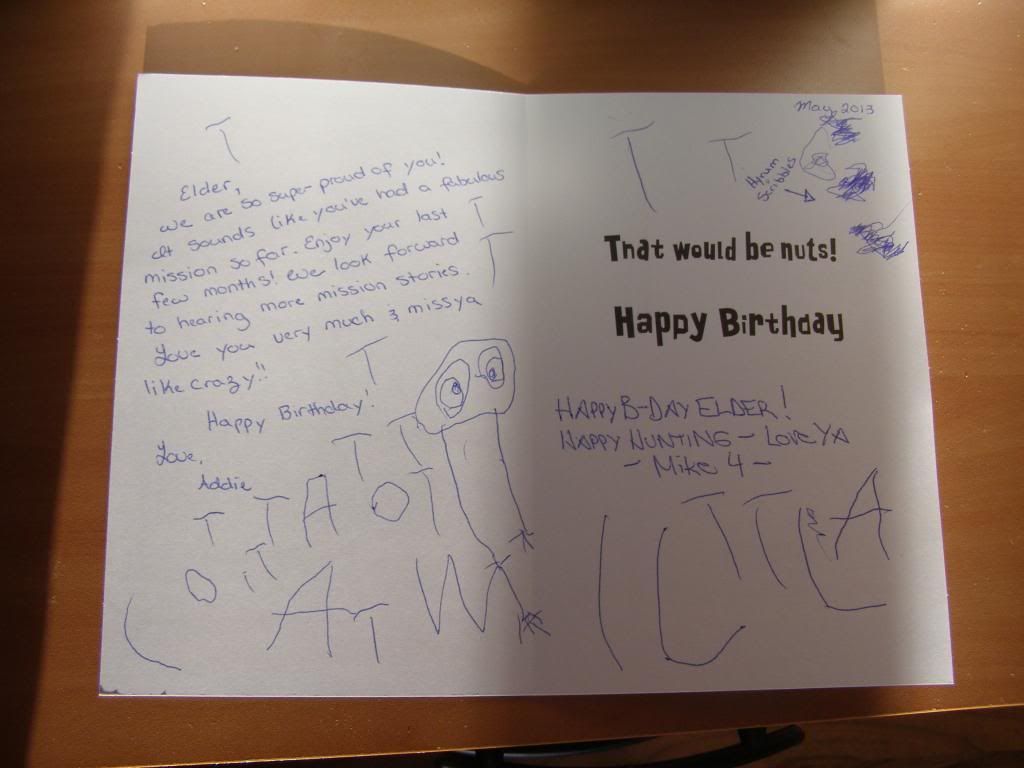 T
Elder,
we are so super proud of you!
It sounds like you've had a fabulous
mission so far. Enjoy your last
few months! We look forward
to hearing more mission stories.
Love you very much & miss ya
like crazy!!
Happy Birthday!
Love,
Addie
T
T
T
T T
T T A O T
O i T
L A T W
May, 2013
T T
Hyrum
Scribbles
That would be nuts!
Happy Birthday
HAPPY B-DAY ELDER!
HAPPY HUNTING - LOVE YA
- Mike 4 -